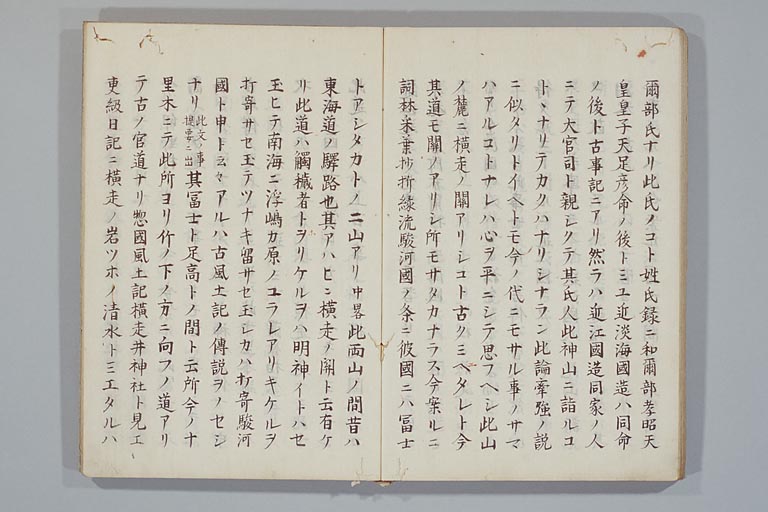 爾部氏ナリ此氏ノコト姓氏録ニ和爾部孝昭天
皇皇子天足彦命ノ後トミエ近淡海國造ハ同命
ノ後ト古事記ニアリ然ラハ近江國造同家ノ人
ニテ大官司ト親シクテ其氏人此神山ニ詣ルコ
ト丶ナリテカクハナリシナラン此論牽強ノ説
ニ似タリトイヘトモ今ノ代ニモサル事ノサマ
ハアルコトナレハ心ヲ平ニシテ思フヘシ此山
ノ麓ニ横走ノ關アリシコト古クミヘタレト今
其道モ關ノアリシ所モサタカナラス今案ルニ
詞林采葉抄折綾流駿河國ノ条ニ彼國ニハ冨士
トアシタカトノ二山アリ中畧此両山ノ間昔ハ
東海道ノ驛路也其アハヒニ横走ノ関ト云有ケ
リ此道ハ觸穢者トヲリケルヲハ明神イトハセ
玉ヒテ南海ニ浮嶋カ原ノユラレアリキケルヲ
打寄サセ玉テツナキ留サセ玉シカハ打寄駿河
國ト申ト云々アルハ古風土記ノ傳説ヲノセシ
ナリ此文ノ事提要ニ出其冨士ト足高トノ間ト云所今ノナ
里木ニテ此所ヨリ竹ノ下ノ方ニ向フノ道アリ
テ古ノ官道ナリ惣國風土記横走井神社ト見エ
更級日記ニ横走ノ岩ツホノ清水トミエタルハ